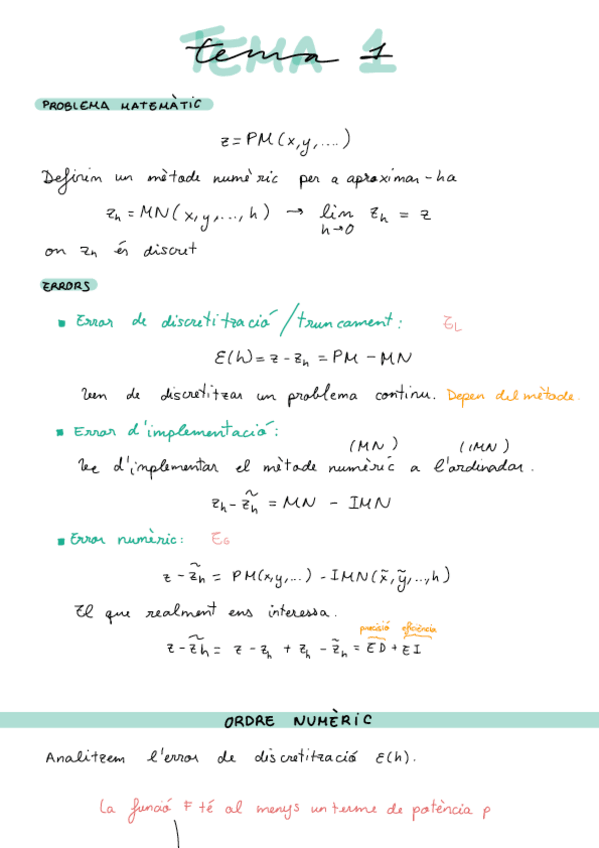 TEMA 1
tema 1
PROBLEMA MATEMÀTIC
z = PM(x,y,....)
Definim un mètode numèric per a aproximar-ho
zₕ = MN(x,y,...,h) → lim zₕ = z
h→0
on zₕ és discret
ERRORS
Error de discretització/truncament: EL
E(h) = z - zₕ = PM - MN
Ven de discretitzar un problema continu. Depen del mètode.
Error d'implementació:
(MN) (IMN)
Ve d'implementar el mètode numèric a l'ordinador.
zₕ - z̃ₕ = MN - IMN
Error numèric: EG
z - z̃ₕ = PM(x,y,...) - IMN(x̃,ỹ,..,h)
El que realment ens interessa.
precisió eficiència
z - z̃ₕ = z - zₕ + zₕ - z̃ₕ = ED + EI
ORDRE NUMÈRIC
Analitzem l'error de discretització E(h).
La funció F té al menys un terme de potència p